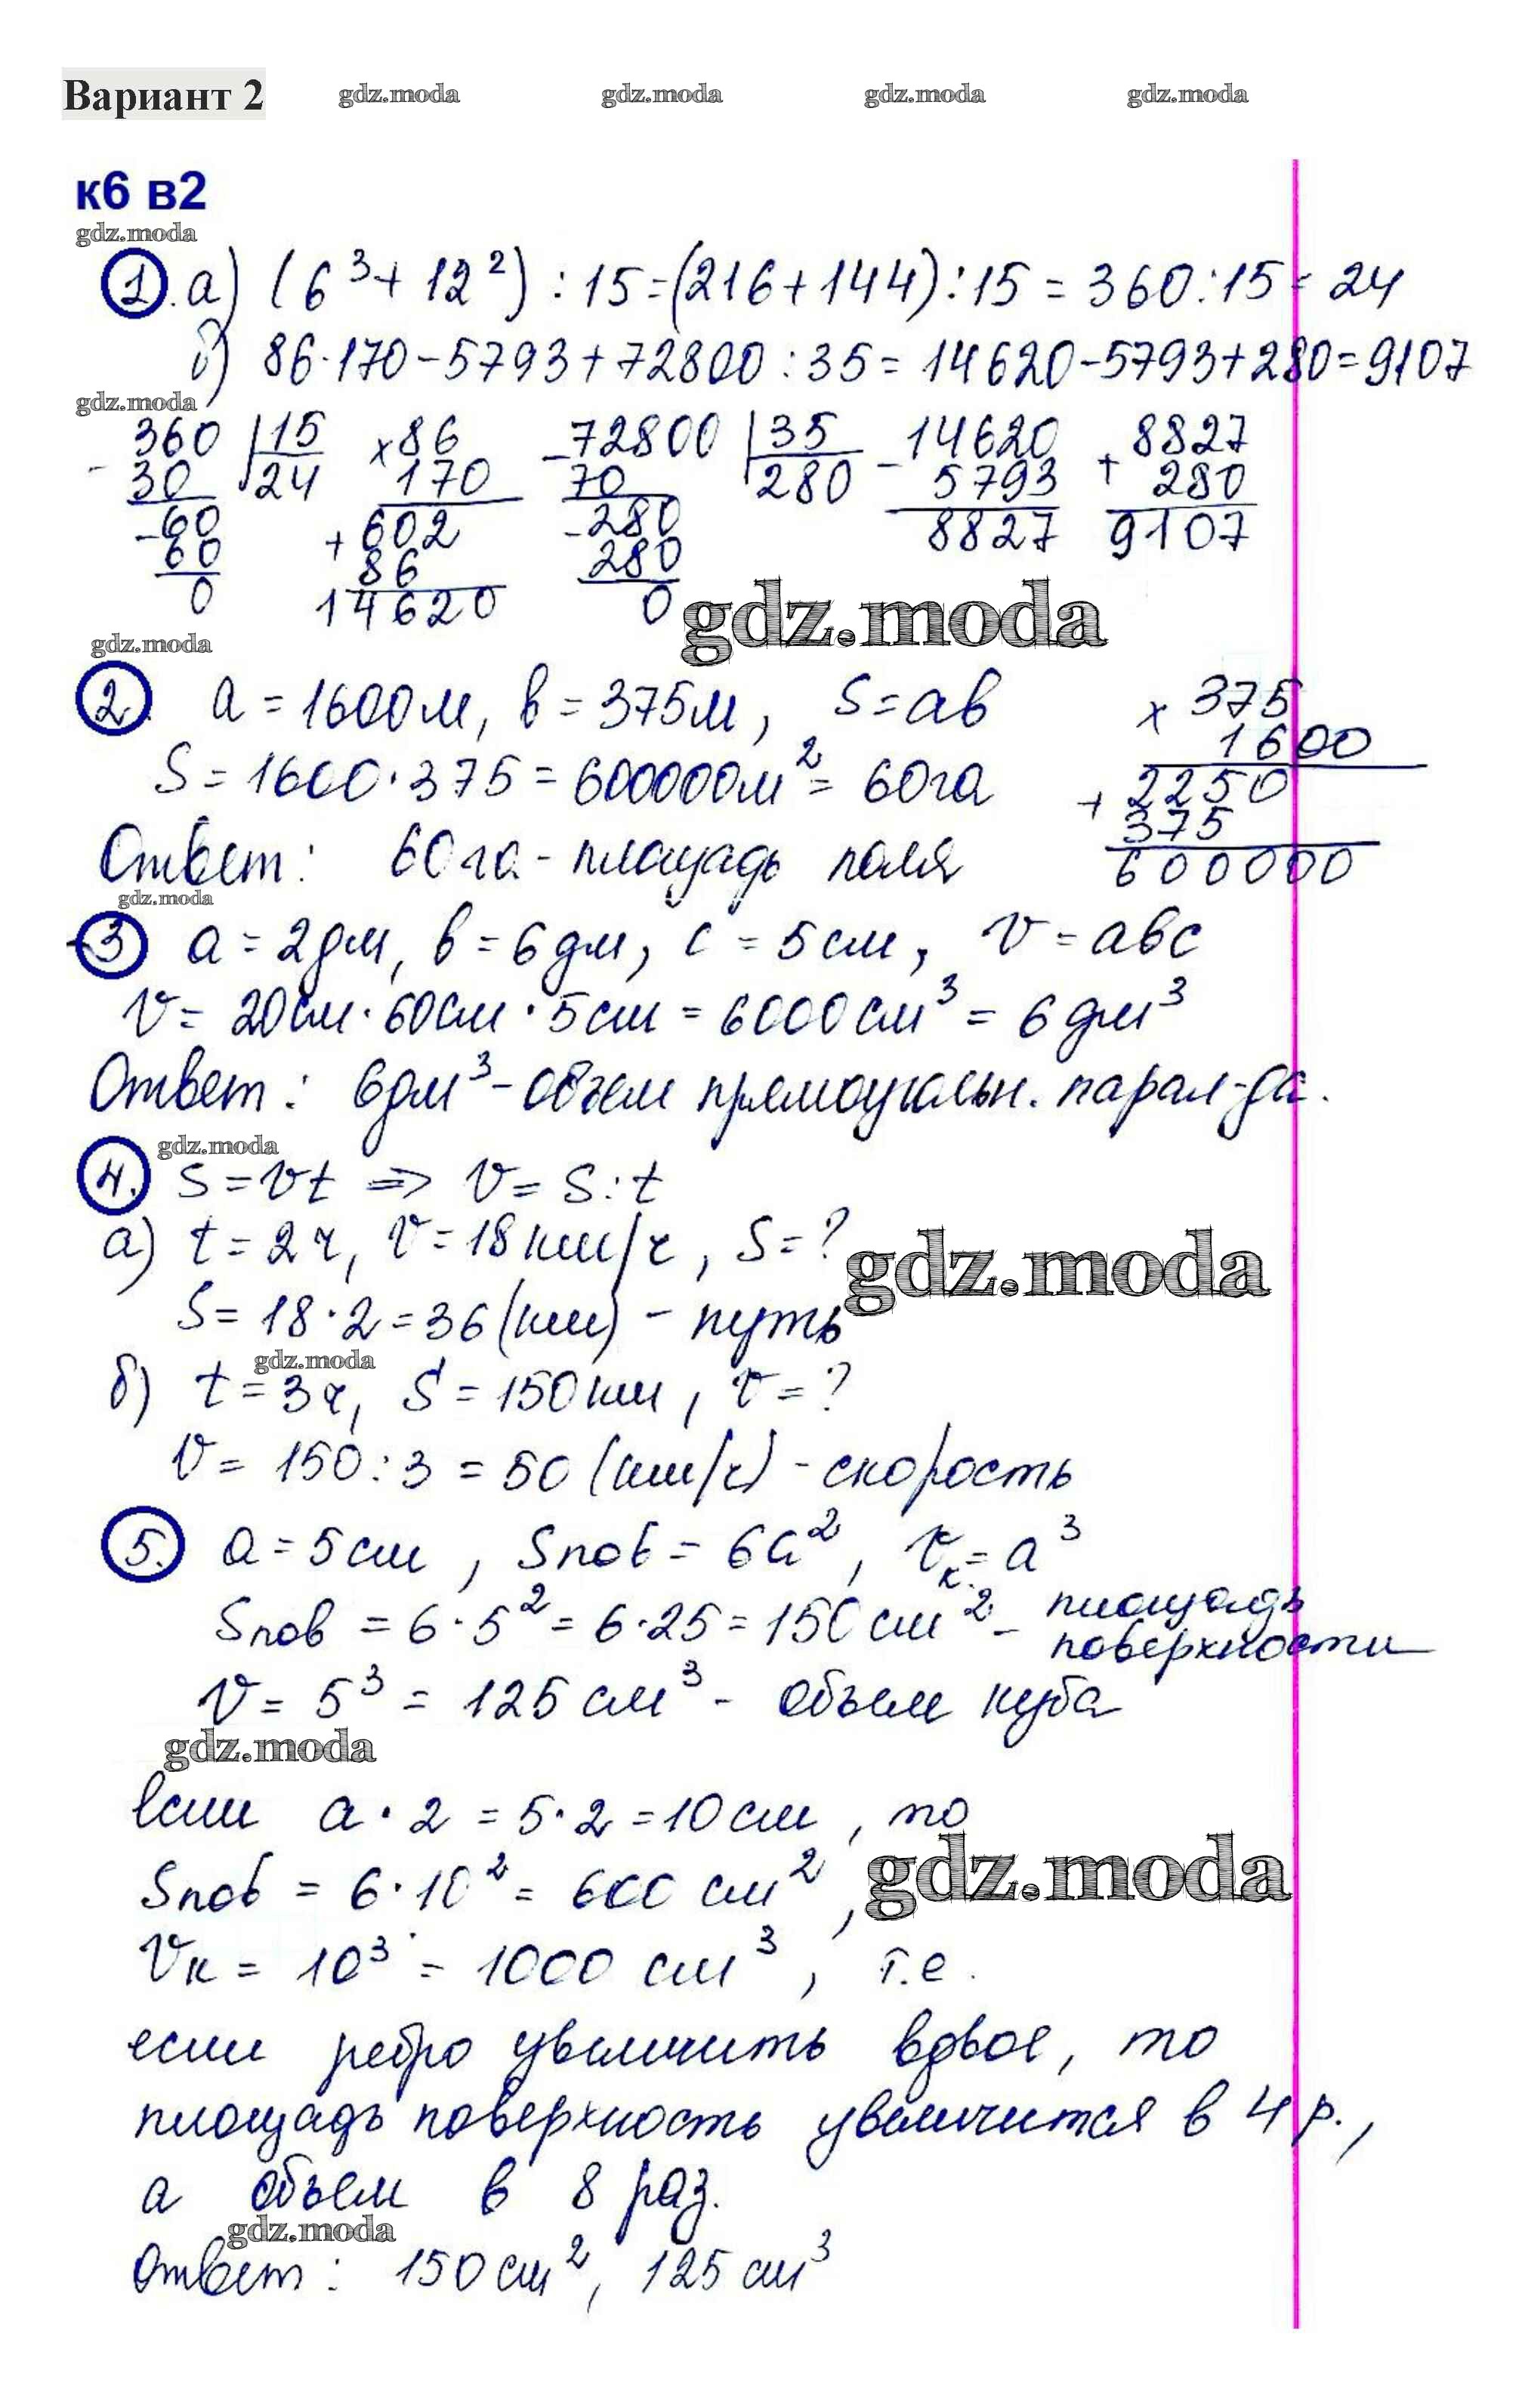 Вариант 2 gdz.moda gdz.moda gdz.moda gdz.moda
к6 в2
gdz.moda
1. а) (6³ + 12²) : 15 = (216 + 144) : 15 = 360 : 15 = 24
б) 86 · 170 - 5793 + 72800 : 35 = 14620 - 5793 + 280 = 9107
gdz.moda
- 360 | 15 × 86 - 72800 | 35 - 14620 + 8827
30 24 170 70 280 5793 280
- 60 + 602 - 280 8827 9107
60 86 280
0 14620 0 gdz.moda
gdz.moda
2. a = 1600 м, b = 375 м, S = ab × 375
1600
S = 1600 · 375 = 600000 м² = 60 га + 2250
375
Ответ: 60 га - площадь поля 600000
gdz.moda
3 a = 2 дм, b = 6 дм, c = 5 см, V = abc
V = 20 см · 60 см · 5 см = 6000 см³ = 6 дм³
Ответ: 6 дм³ - объем прямоугольн. парал-да.
gdz.moda
4. S = vt => v = S : t
а) t = 2 ч, v = 18 км/ч, S = ?
gdz.moda
S = 18 · 2 = 36 (км) - путь
gdz.moda
б) t = 3 ч, S = 150 км, v = ?
v = 150 : 3 = 50 (км/ч) - скорость
5. a = 5 см, Sпов = 6a², Vк. = a³
Sпов = 6 · 5² = 6 · 25 = 150 см² - площадь
поверхности
V = 5³ = 125 см³ - объем куба
gdz.moda
если a · 2 = 5 · 2 = 10 см, то
Sпов = 6 · 10² = 600 см², gdz.moda
Vк = 10³ = 1000 см³, т.е.
если ребро увеличить вдвое, то
площадь поверхность увеличится в 4 р.,
а объем в 8 раз.
gdz.moda
Ответ: 150 см², 125 см³